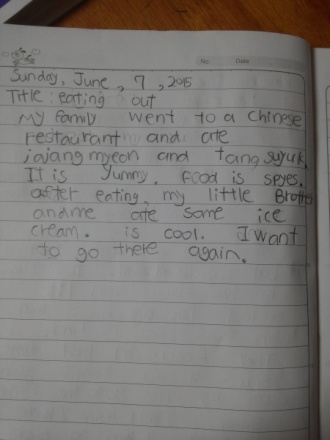 No. Date
Sunday, June, 7, 2015
Title : eating out
My family went to a Chinese
restaurant and ate
jajang myeon and tang suyuk.
It is yummy. Food is spyes.
after eating, my little Brother
and me ate some ice
cream. is cool. I want
to go there again.